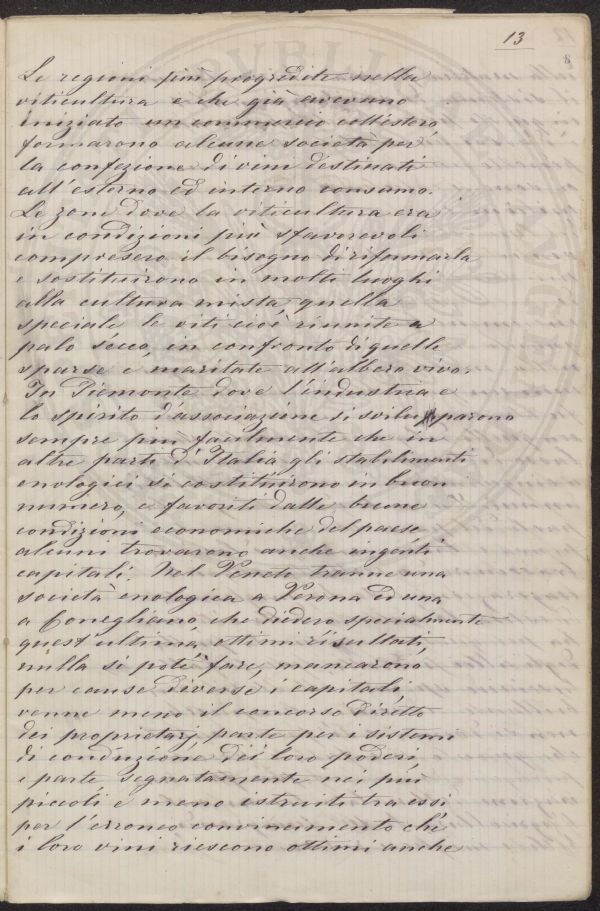 13
8
Le regioni più progredite nella
viticultura e che già avevano
iniziato un commercio coll'estero,
formarono alcune società per
la confezione di vini destinati
all'esterno ed interno consumo.
Le zone dove la viticultura era
in condizioni più sfavorevoli
compresero il bisogno di riformarla
e sostituirono in molti luoghi
alla cultura mista, quella
speciale le viti cioè riunite a
palo secco, in confronto di quelle
sparse e maritate all'albero vivo.
In Piemonte dove l'industria e
lo spirito d'associazione si svilupparono
sempre più facilmente che in
altre parti d'Italia gli stabilimenti
enologici si costituirono in buon
numero, e favoriti dalle buone
condizioni economiche del paese
alcuni trovarono anche ingenti
capitali. Nel Veneto tranne una
società enologica a Verona ed una
a Conegliano, che diedero specialmente
quest'ultima, ottimi risultati,
nulla si potè fare, mancarono
per cause diverse i capitali,
venne meno il concorso diretto
dei proprietarj, parte per i sistemi
di conduzione dei loro poderi,
e parte, segnatamente nei più
piccoli, e meno istruiti tra essi,
per l'erroneo convincimento che
i loro vini riescono ottimi anche